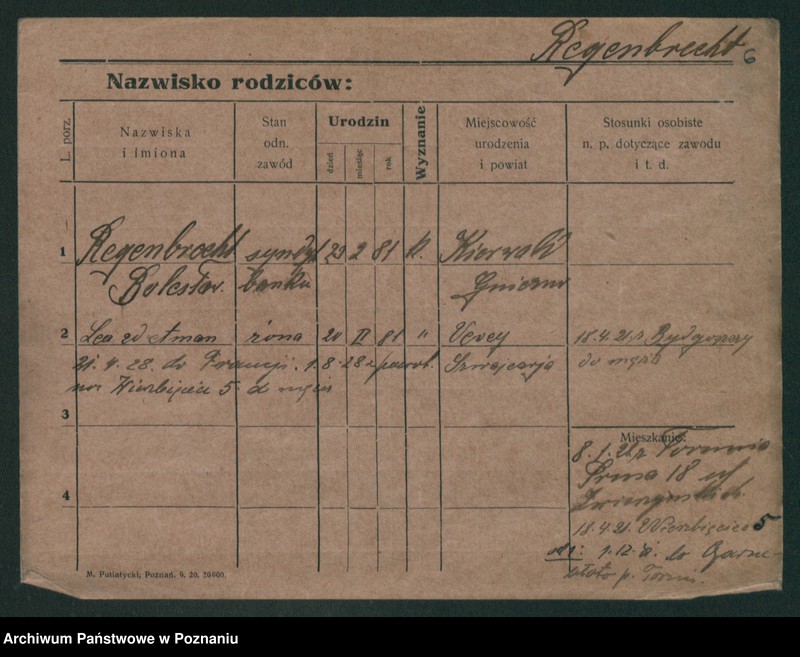 Regenbrecht 6
Nazwisko rodziców:
L. porz.
Nazwiska i imiona
Stan odn. zawód
Urodzin
dzień
miesiąc
rok
Wyznanie
Miejscowość urodzenia i powiat
Stosunki osobiste n. p. dotyczące zawodu i t. d.
1 Regenbrecht syndyk 23 2 81 k.
Bolesław. banku Gniezno
2 Lea żona 20 II 81 " Vevey 18.4.21 z Bydgoszczy
21.4.28. do Francji. 1.8.28 z powrot. Szwajcarja do męża
Wierzbięcice 5
3
Mieszkanie:
8.1.21 z Torunia
18
4
18.4.21. Wierzbięcice 5
1.12. do
p. Toruń.
M. Putiatycki, Poznań, 9. 20, 20600.
Archiwum Państwowe w Poznaniu